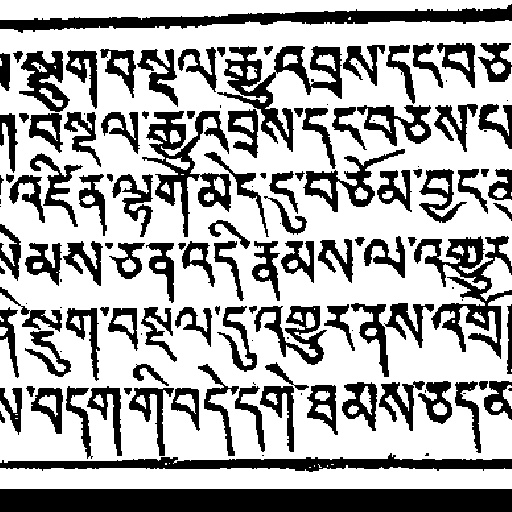 སྡུག་བསྔལ་རྒྱུ་འབྲས་དང་བཅ
ག་བསྔལ་རྒྱུ་འབྲས་དང་བཅས་པ
འཛིན་ལྷག་མེད་དུ་བཅོམ་བྱང་ཆུ
སེམས་ཅན་འདི་རྣམས་ལ་འགྱུར
ནི་སྡུག་བསྔལ་དུ་འགྱུར་ནས་འགྲོ
ས་བདག་གི་བདེ་དགེ་ཐམས་ཅད་མ